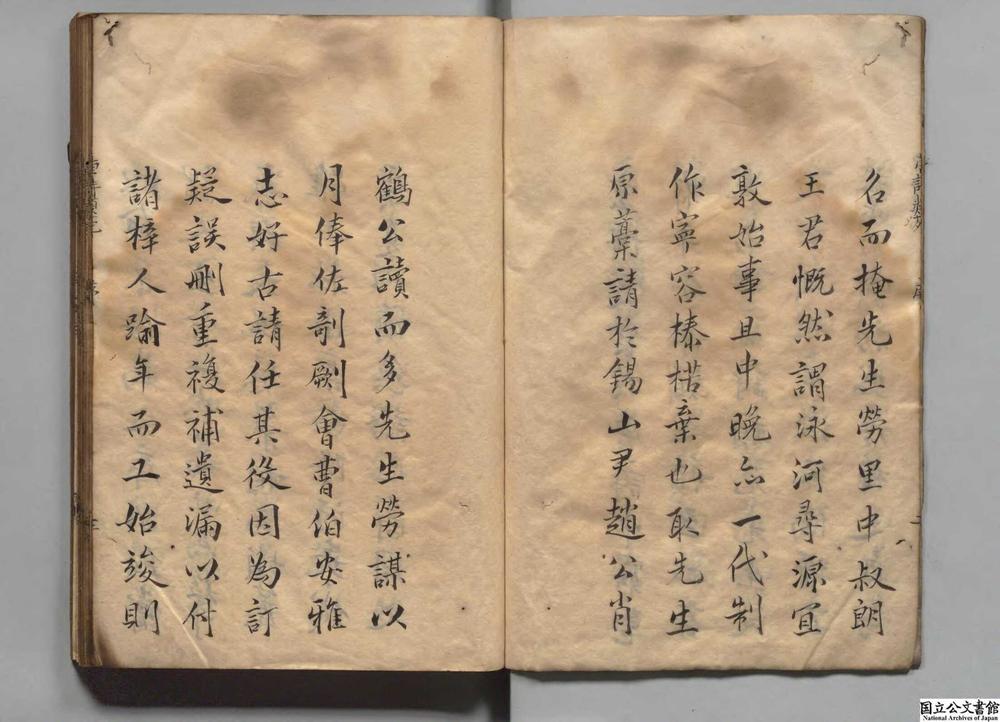 名而掩先生勞里中叔朗
王君慨然謂泳河尋源宜
敦始事且中晚亦一代制
作寧容榛楛棄也取先生
原藁請於錫山尹趙公肖
鶴公讀而多先生勞謀以
月俸佐剞劂會曹伯安雅
志好古請任其役因為訂
疑誤刪重複補遺漏以付
諸梓人踰年而工始竣則
国立公文書館
National Archives of Japan